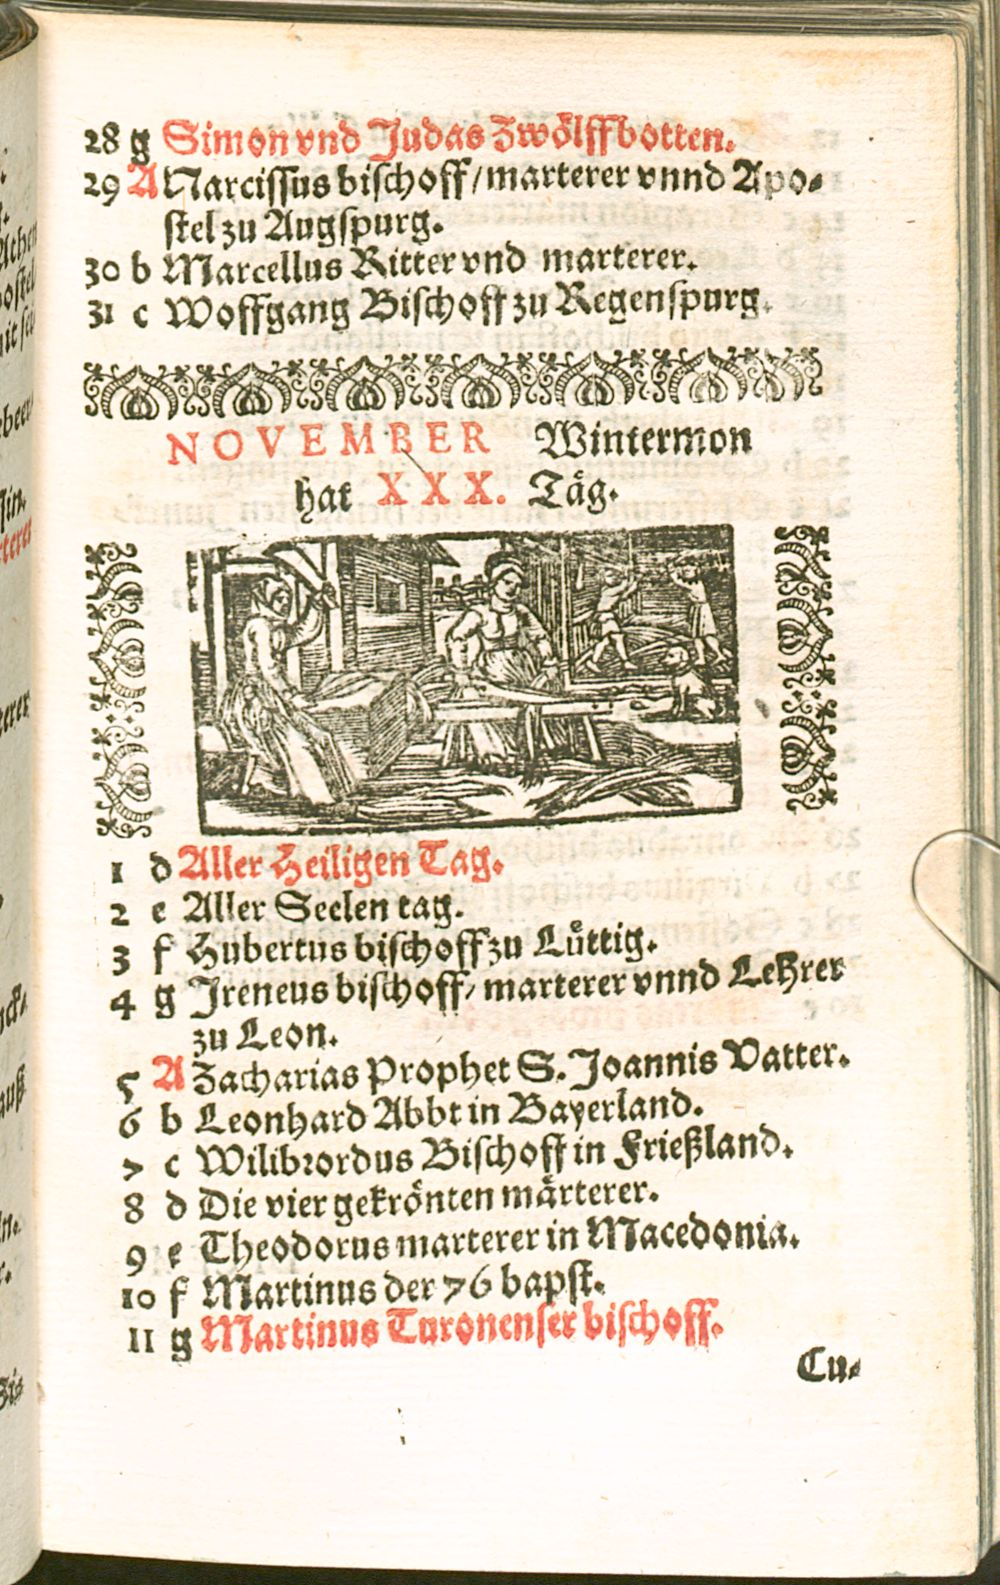 28 g Simon vnd Judas Zwölffbotten.
29 A Narcissus bischoff/marterer vnnd Apo-
stel zu Augspurg.
30 b Marcellus Ritter vnd marterer.
31 c Woffgang Bischoff zu Regenspurg.
NOVEMBER Wintermon
hat XXX. Täg.
1 d Aller Heiligen Tag.
2 e Aller Seelen tag.
3 f Hubertus bischoff zu Lüttig.
4 g Jreneus bischoff/ marterer vnnd Lehrer
zu Leon.
5 A Zacharias Prophet S. Joannis Vatter.
6 b Leonhard Abbt in Bayerland.
7 c Wilibrordus Bischoff in Frießland.
8 d Die vier gekrönten märterer.
9 e Theodorus marterer in Macedonia.
10 f Martinus der 76 bapst.
11 g Martinus Turonenser bischoff.
Cu-